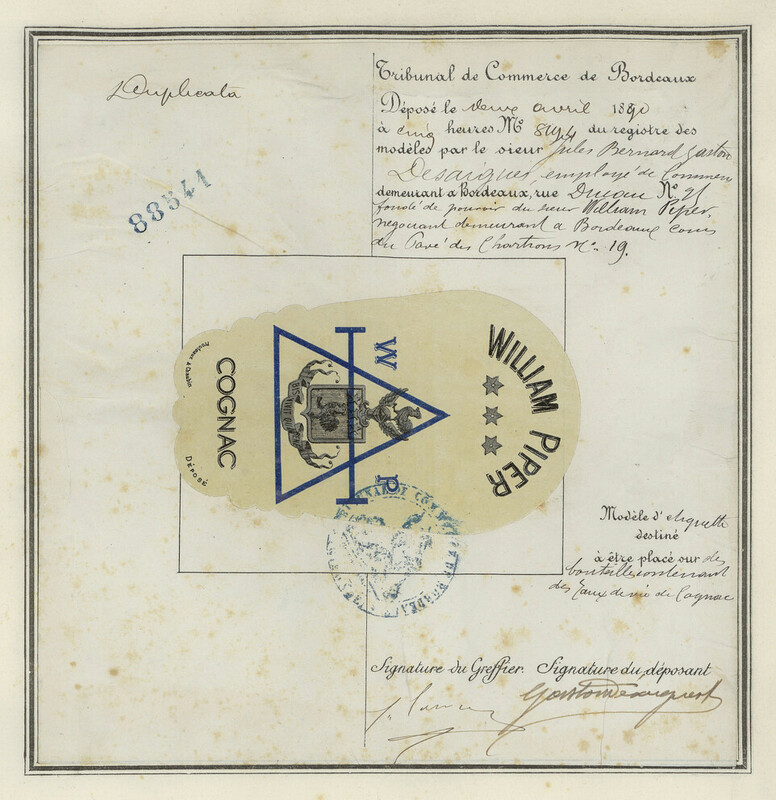 Duplicata
88541
Tribunal de Commerce de Bordeaux
Déposé le deux avril 1890
à cinq heures Nº du registre des
modèles par le sieur Jules Bernard Gaston
employé de Commerce
demeurant à Bordeaux, rue Nº
fondé de pouvoir du sieur William Piper,
négociant demeurant à Bordeaux cours
du Pavé des Chartrons nº 19.
WILLIAM PIPER
W P
COGNAC
DÉPOSÉ
TRIBUNAL DE COMMERCE DE BORDEAUX
Modèle d'étiquette
destiné
à être placé sur des
bouteilles contenant
des Eaux de vie de Cognac
Signature du Greffier. Signature du déposant